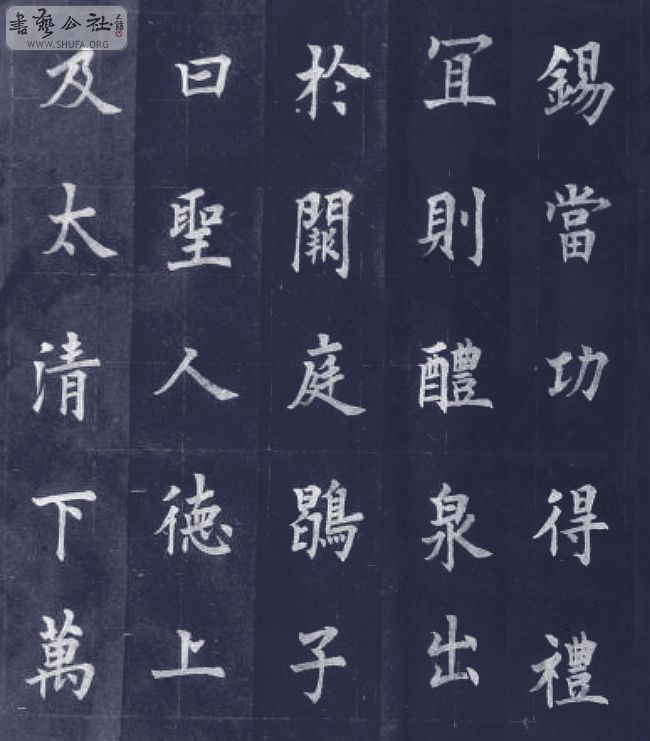 錫當功得禮
冝則醴泉出
於闕庭鶡子
曰聖人德上
及太清下萬
書藝公社
WWW.SHUFA.ORG